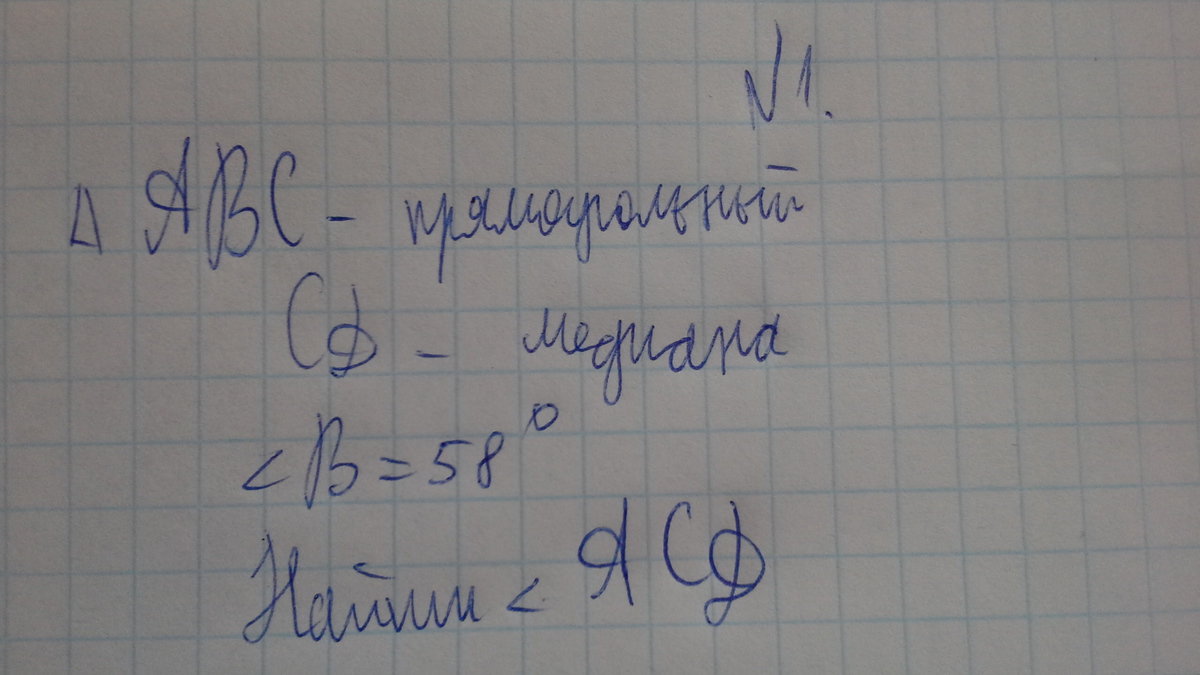 №1.
Δ ABC - прямоугольный
CD - медиана
<B = 58°
Найти < ACD